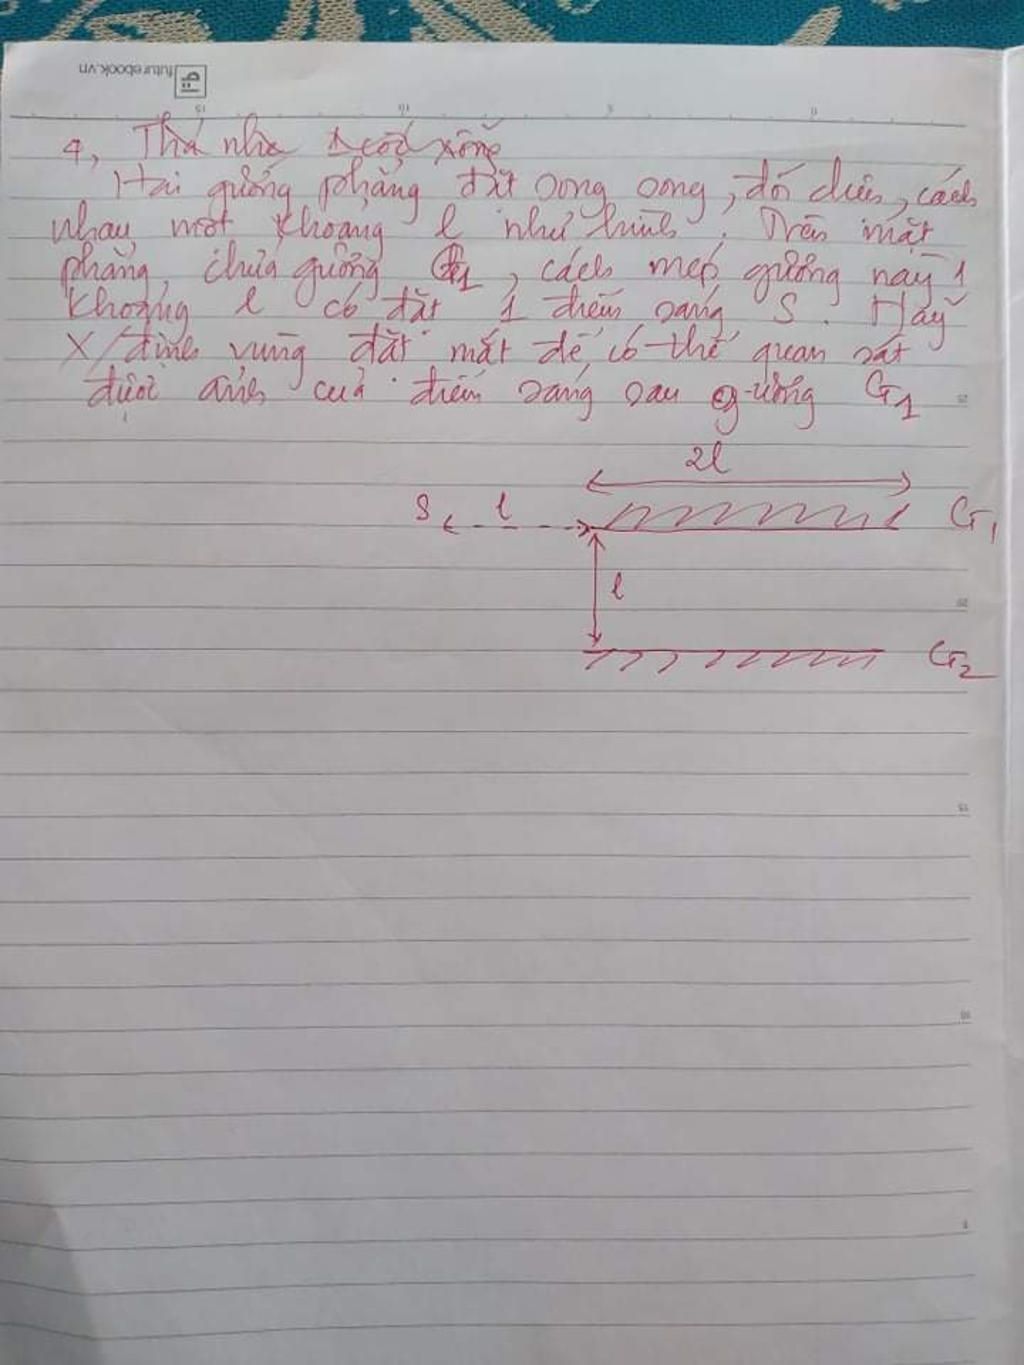 futurebook.vn
4,
Hai gương phẳng đặt song song, đối diện, cách
nhau một khoảng l như hình. Trên mặt
phẳng chứa gương G1, cách mép gương này 1
khoảng l có đặt 1 điểm sáng S. Hãy
x/định vùng đặt mắt để có thể quan sát
được ảnh của điểm sáng sau gương G1
2l
S l G1
l
G2